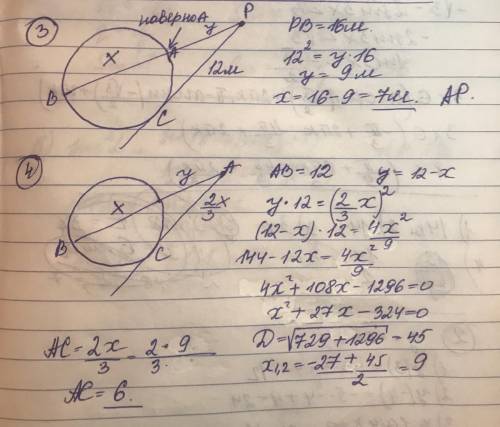 ③
наверно A
P
y
A
x
12м
B
C
PB = 16м.
12² = y·16
y = 9 м
x = 16-9 = 7м. AP.
④
A
y
x
2/3 x
B
C
AB = 12 y = 12-x
y·12 = (2/3 x)²
(12-x)·12 = 4x²/9
144-12x = 4x²/9
4x²+108x-1296=0
x²+27x-324=0
D=√729+1296 = 45
x₁,₂ = -27+45/2 = 9
AC = 2x/3 = 2·9/3.
AC = 6.